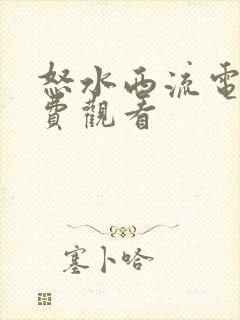 怒水西流電
費觀看
塞卜哈